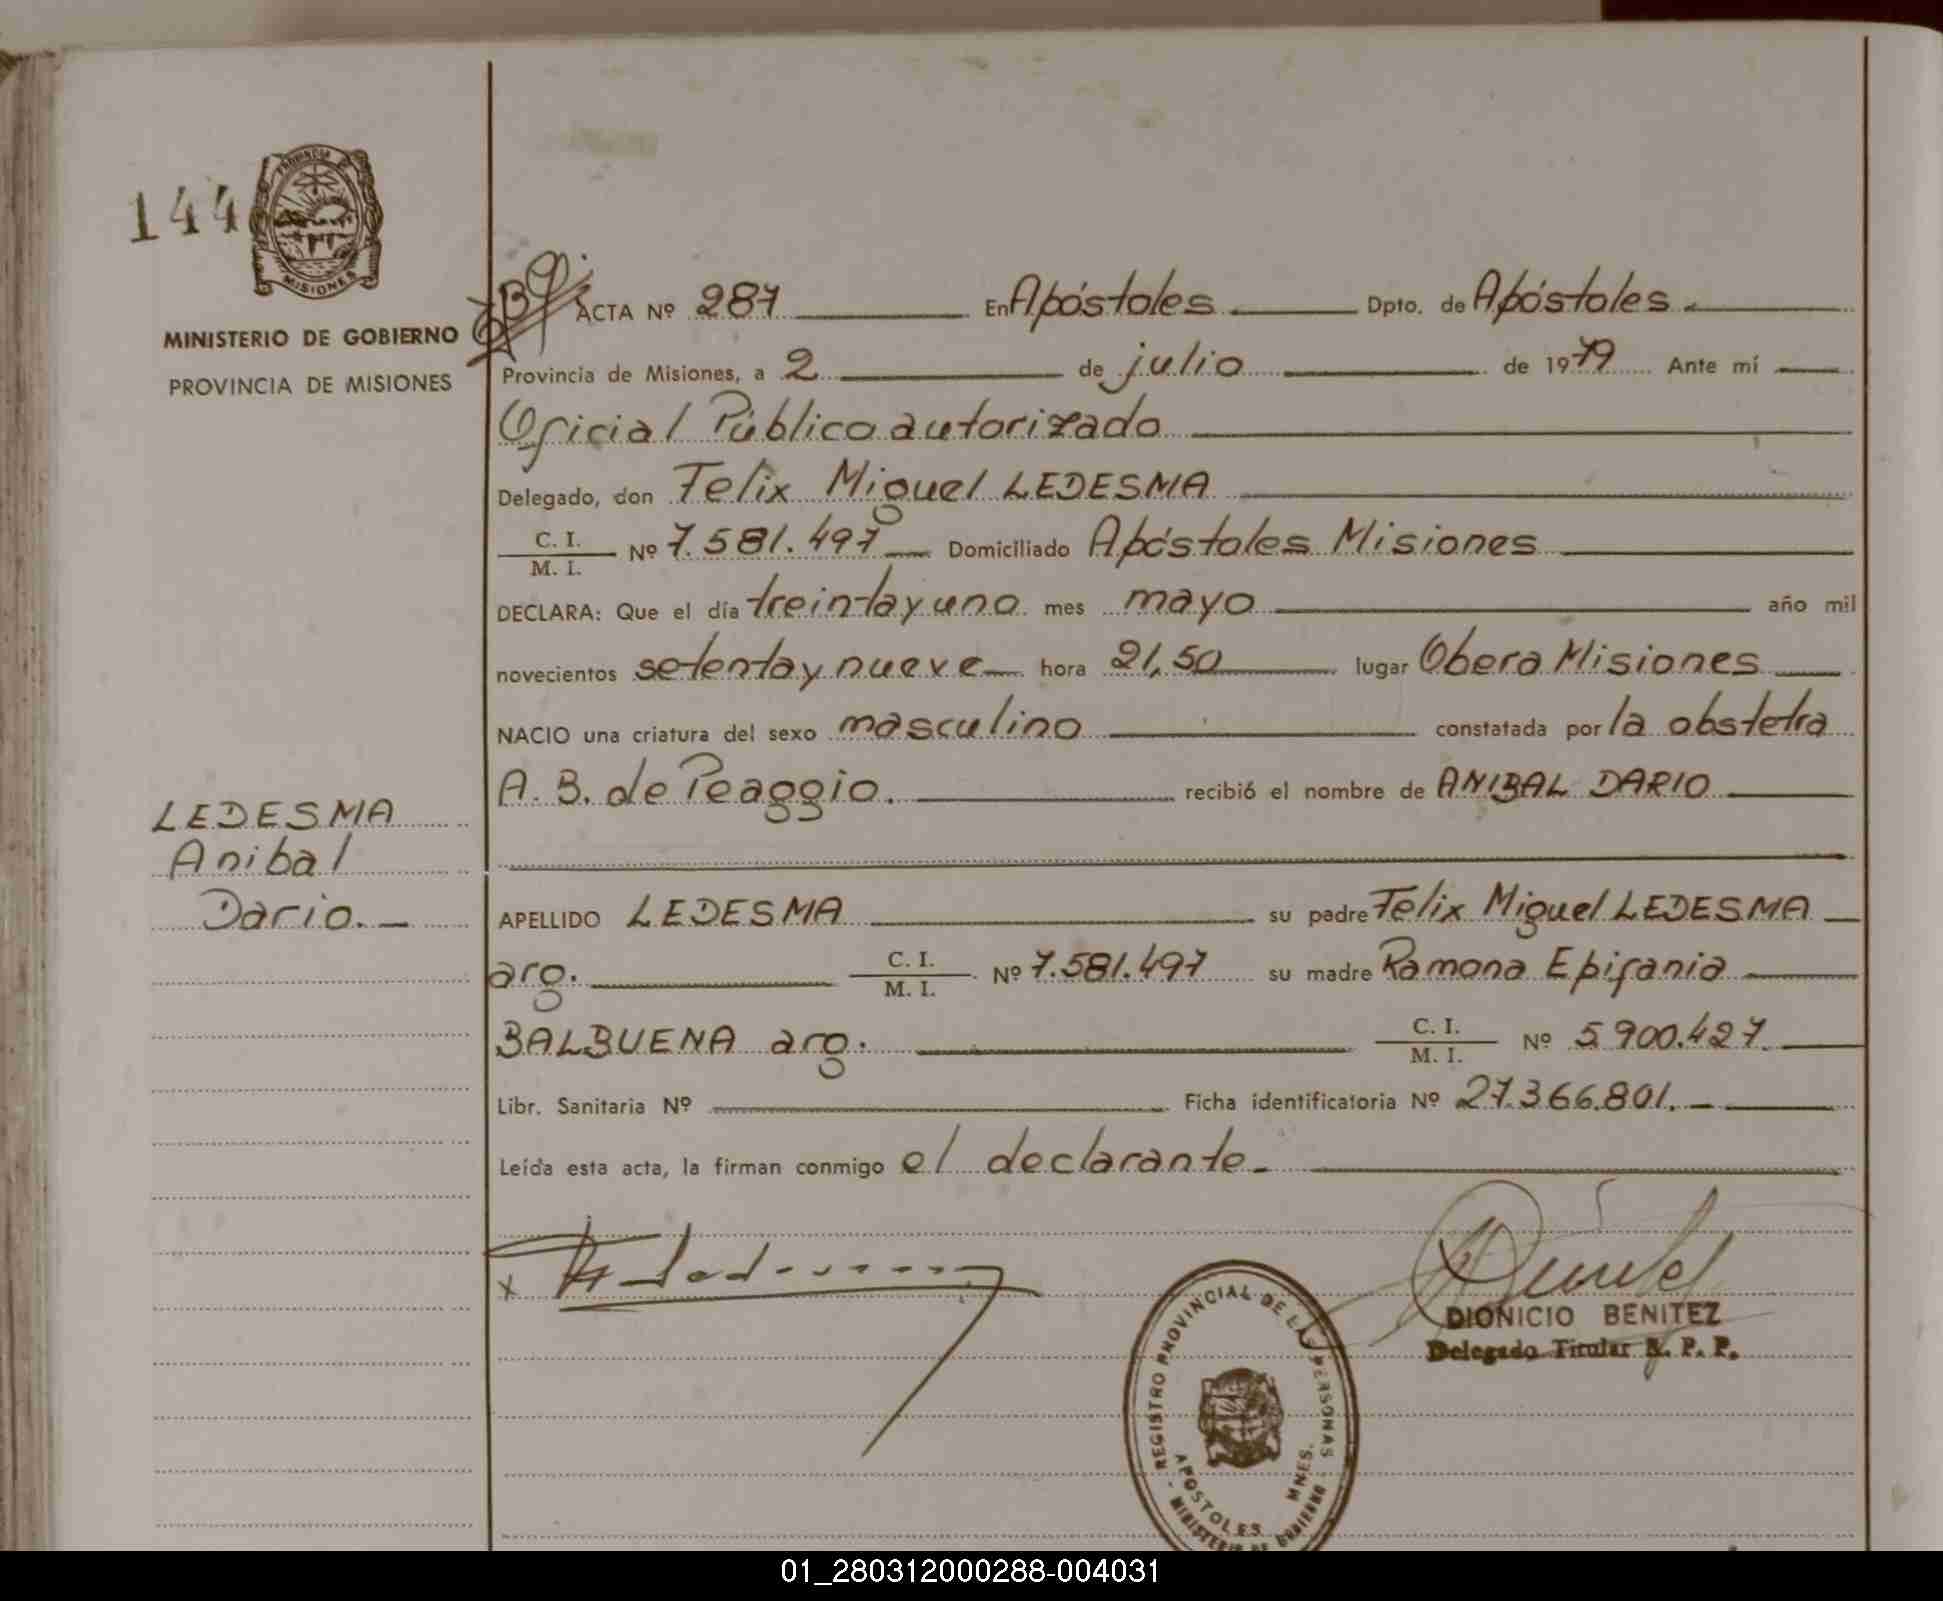 144
PROVINCIA
MISIONES
MINISTERIO DE GOBIERNO
PROVINCIA DE MISIONES
ACTA Nº 287 En Apóstoles Dpto. de Apóstoles
Provincia de Misiones, a 2 de julio de 1979 Ante mí
Oficial Público autorizado
Delegado, don Felix Miguel LEDESMA
C. I. / M. I. Nº 7.581.497 Domiciliado Apóstoles Misiones
DECLARA: Que el día treinta y uno mes mayo año mil
novecientos setenta y nueve hora 21,50 lugar Obera Misiones
NACIO una criatura del sexo masculino constatada por la obstetra
A. B. de Peaggio. recibió el nombre de ANIBAL DARIO
LEDESMA
Anibal
Dario.
APELLIDO LEDESMA su padre Felix Miguel LEDESMA
arg. C. I. / M. I. Nº 7.581.497 su madre Ramona Epifania
BALBUENA arg. C. I. / M. I. Nº 5 900.427
Libr. Sanitaria Nº Ficha identificatoria Nº 27.366.801.
Leída esta acta, la firman conmigo el declarante.
DIONICIO BENITEZ
Delegado Titular R. P. P.
REGISTRO PROVINCIAL DE LAS PERSONAS
APOSTOLES MNES.
MINISTERIO DE GOBIERNO
01_280312000288-004031